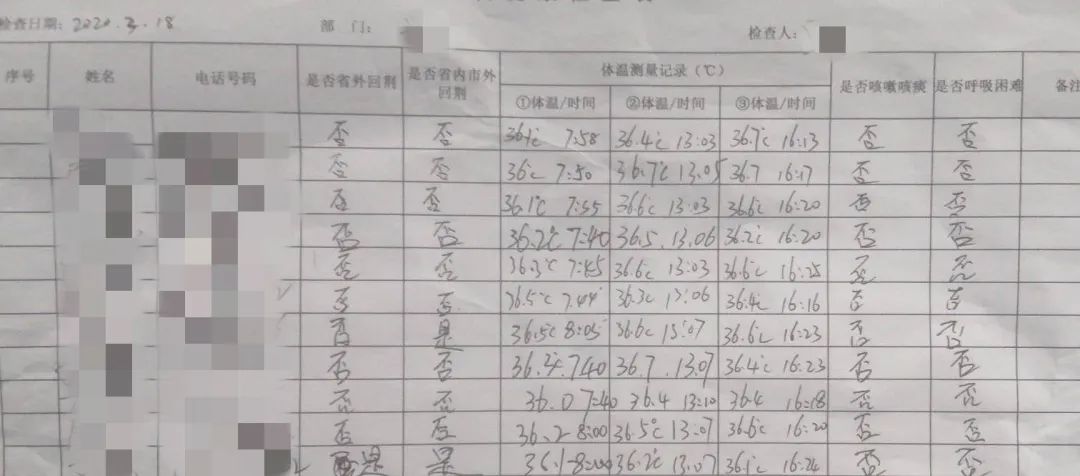 检查日期: 2020.3.18 部 门: 检查人:
序号 姓名 电话号码 是否省外回荆 是否省内市外回荆 体温测量记录(℃) 是否咳嗽咳痰 是否呼吸困难 备注
①体温/时间 ②体温/时间 ③体温/时间
否 否 36.1℃ 7:58 36.4℃ 13:03 36.7℃ 16:13 否 否
否 否 36℃ 7:50 36.7℃ 13:05 36.7 16:17 否 否
否 否 36.1℃ 7:55 36.6℃ 13:03 36.6℃ 16:20 否 否
否 否 36.2℃ 7:40 36.5. 13.06 36.2℃ 16:20 否 否
否 否 36.3℃ 7:45 36.6℃ 13:03 36.6℃ 16:25 否 否
否 否 36.5℃ 36.3℃ 13:06 36.4℃ 16:16 否 否
否 是 36.5℃ 8:05 36.6℃ 13:07 36.6℃ 16:23 否 否
否 否 7:40 36.7. 13.07 36.4℃ 16:23 否 否
否 否 36.0 7:40 36.4 13:10 36.4 16:18 否 否
否 否 36.2 8:00 36.5℃ 13:07 36.6℃ 16:20 否 否
是 是 36.1 8:00 36.2℃ 13:07 36.1℃ 16:24 否 否